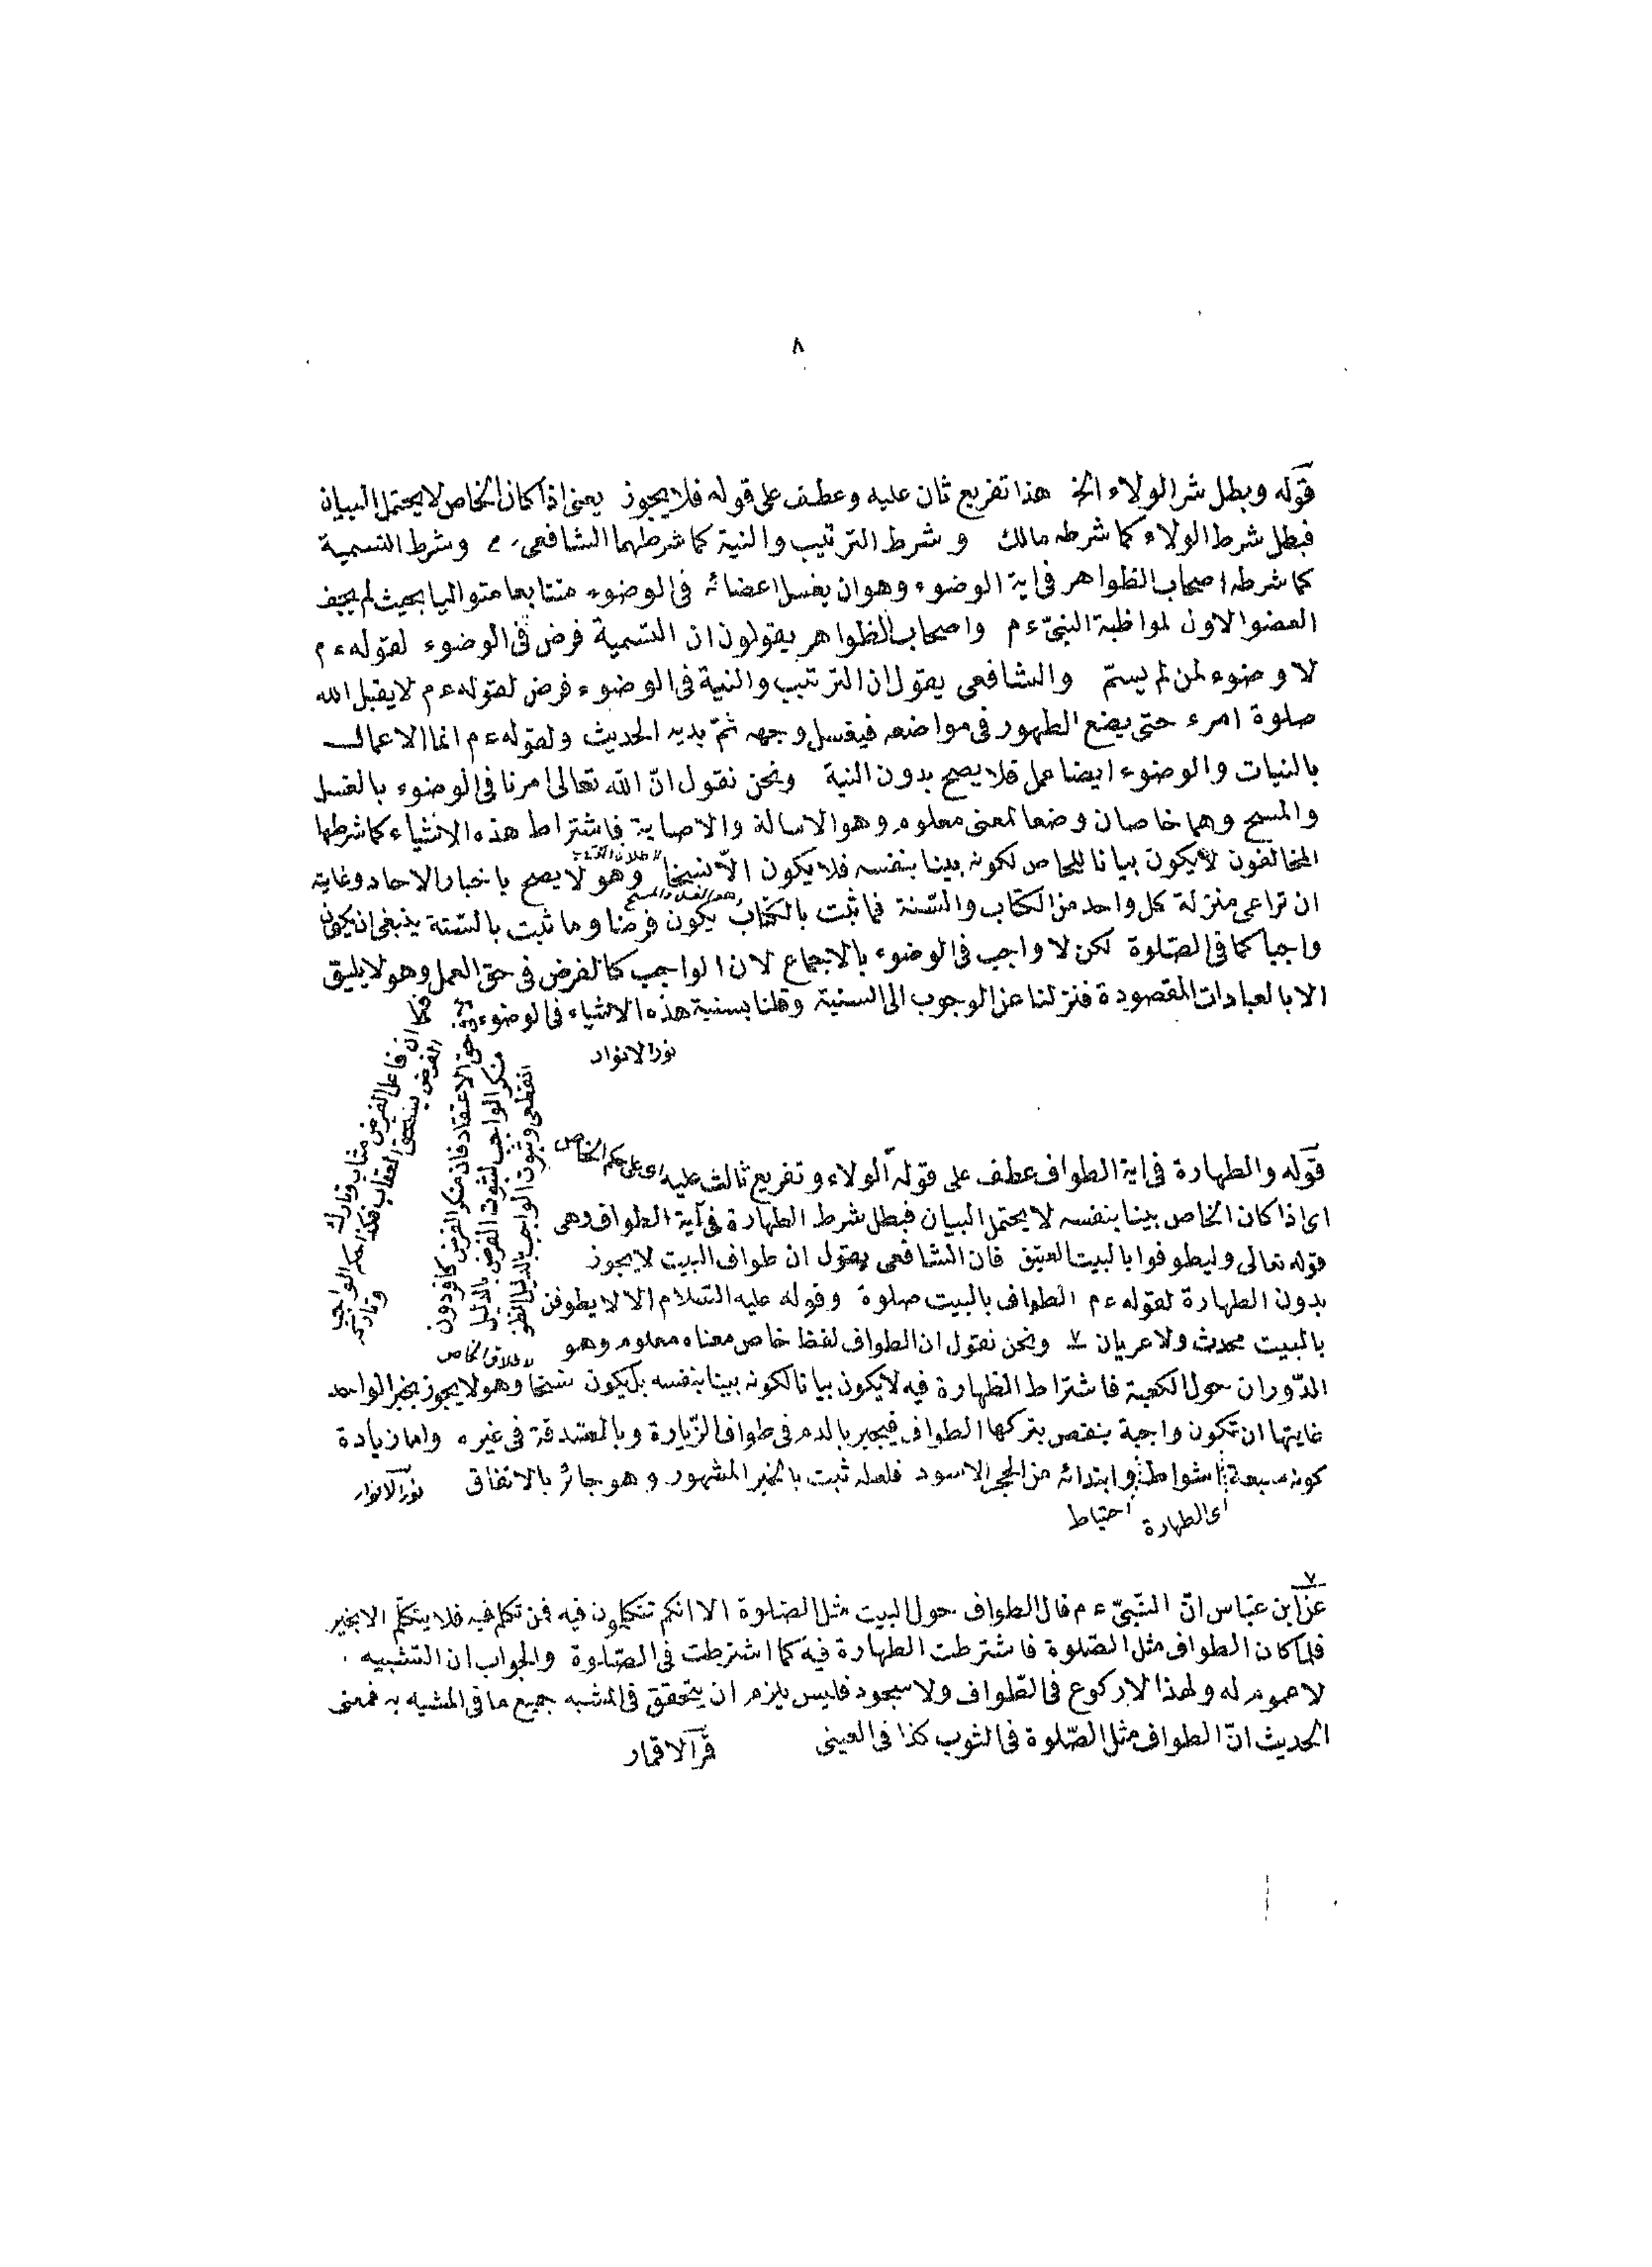 ٨
قوله وبطل شر الولاء الخ هذا تفريع ثان عليه وعطف على قوله فلا يجوز يعنى اذا كان الخاص لا يحتمل البيان
فبطل شرط الولاء كما شرطه مالك و شرط الترتيب والنية كما شرطهما الشافعى وشرط التسمية
كما شرطه اصحاب الظواهر فى اية الوضوء وهو ان يغسل اعضائه فى الوضوء متتابعا متواليا بحيث لم يجف
العضو الاول لمواظبة النبىّ ءم واصحاب الظواهر يقولون ان التسمية فرض فى الوضوء لقوله ءم
لا وضوء لمن لم يسمّ والشافعى يقول ان الترتيب والنية فى الوضوء فرض لقوله ءم لا يقبل الله
صلوة امرء حتى يضع الطهور فى مواضعه فيغسل وجهه ثمّ يديه الحديث ولقوله ءم انما الاعمال
بالنيات والوضوء ايضا عمل فلا يصح بدون النية ونحن نقول انّ الله تعالى امرنا فى الوضوء بالغسل
والمسح وهما خاصان وضعا لمعنى معلوم وهو الاسالة والاصابة فاشتراط هذه الاشياء كما شرطها
المخالفون لا يكون بيانا للخاص لكونه بينا بنفسه فلا يكون الاّ نسخا وهو لا يصح باخبار الاحاد وغايته
ان تراعى منزلة كل واحد من الكتاب والسّنة فما ثبت بالكتاب يكون فرضا وما ثبت بالسّنة ينبغى ان يكون
وهو الغسل والمسح
واجبا كما فى الصّلوة لكن لا واجب فى الوضوء بالاجماع لان الواجب كالفرض فى حق العمل وهو لا يليق
الا بالعبادات المقصودة فنزلنا عن الوجوب الى السنية وقلنا بسنية هذه الاشياء فى الوضوء
نور الانوار
فكما ان فاعل الفرض مثاب وتارك
الفرض يستحق العقاب هكذا حكم الواجب
وتاركه
حق الاعتقاد فان منكر الفرض كافر دون
منكر الواجب لثبوت الفرض بالدليل
القطعى وثبوت الواجب بالدليل الظنى
قوله والطهارة فى اية الطواف عطف على قوله الولاء وتفريع ثالث عليه اى على حكم الخاص
اى اذا كان الخاص بينا بنفسه لا يحتمل البيان فبطل شرط الطهارة فى آية الطواف وهى
قوله تعالى وليطوفوا بالبيت العتيق فان الشافعى يقول ان طواف البيت لا يجوز
بدون الطهارة لقوله ءم الطواف بالبيت صلوة وقوله عليه السّلام الا لا يطوفن
بالبيت محدث ولا عريان ٧ ونحن نقول ان الطواف لفظ خاص معناه معلوم وهو
لاطلاق الخاص
الدّوران حول الكعبة فاشتراط الطهارة فيه لا يكون بيانا لكونه بينا بنفسه بل يكون نسخا وهو لا يجوز بخبر الواحد
غايتها ان تكون واجبة ينقص بتركها الطواف فيجبر بالدم فى طواف الزّيارة وبالصّدقة فى غيره واما زيادة
كونه سبعة اشواط وابتدائه من الحجر الاسود فلعله ثبت بالخبر المشهور وهو جائز بالاتفاق نور الانوار
اى الطهارة احتياط
٧
عن ابن عبّاس انّ النّبىّ ءم قال الطواف حول البيت مثل الصّلوة الا انكم تتكلمون فيه فمن تكلم فيه فلا يتكلّم الا بخير
فلما كان الطواف مثل الصّلوة فاشترطت الطهارة فيه كما اشترطت فى الصّلوة والجواب ان التشبيه
لا عموم له ولهذا لا ركوع فى الطّواف ولا سجود فليس يلزم ان يتحقق فى المشبه جميع ما فى المشبه به فمعنى
الحديث انّ الطواف مثل الصّلوة فى الثوب كذا فى العينى قمر الاقمار